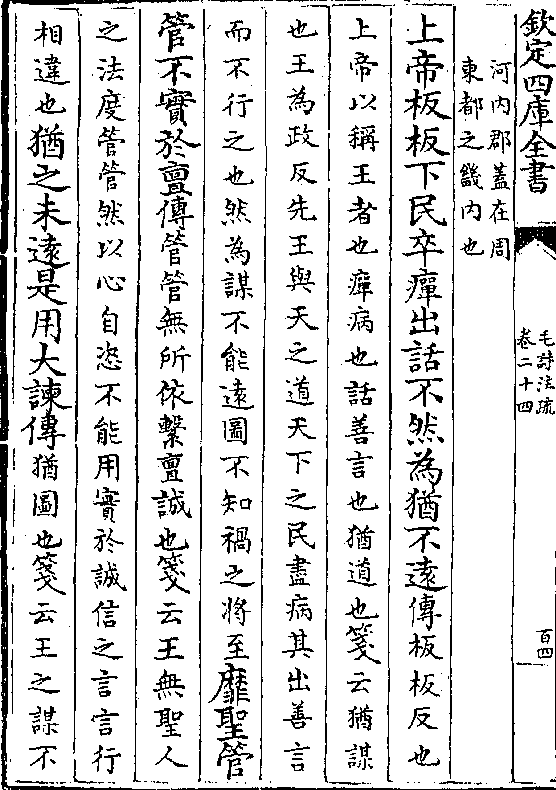 欽定四庫全書
毛詩注疏
卷二十四
百四
河内郡蓋在周
東都之畿内也
上帝板板下民卒癉出話不然為猶不遠傳板板反也
上帝以稱王者也癉病也話善言也猶道也箋云猶謀
也王為政反先王與天之道天下之民盡病其出善言
而不行之也然為謀不能遠圖不知禍之將至靡聖管
管不實於亶傳管管無所依繫亶誠也箋云王無聖人
之法度管管然以心自恣不能用實於誠信之言言行
相違也猶之未遠是用大諫傳猶圖也箋云王之謀不